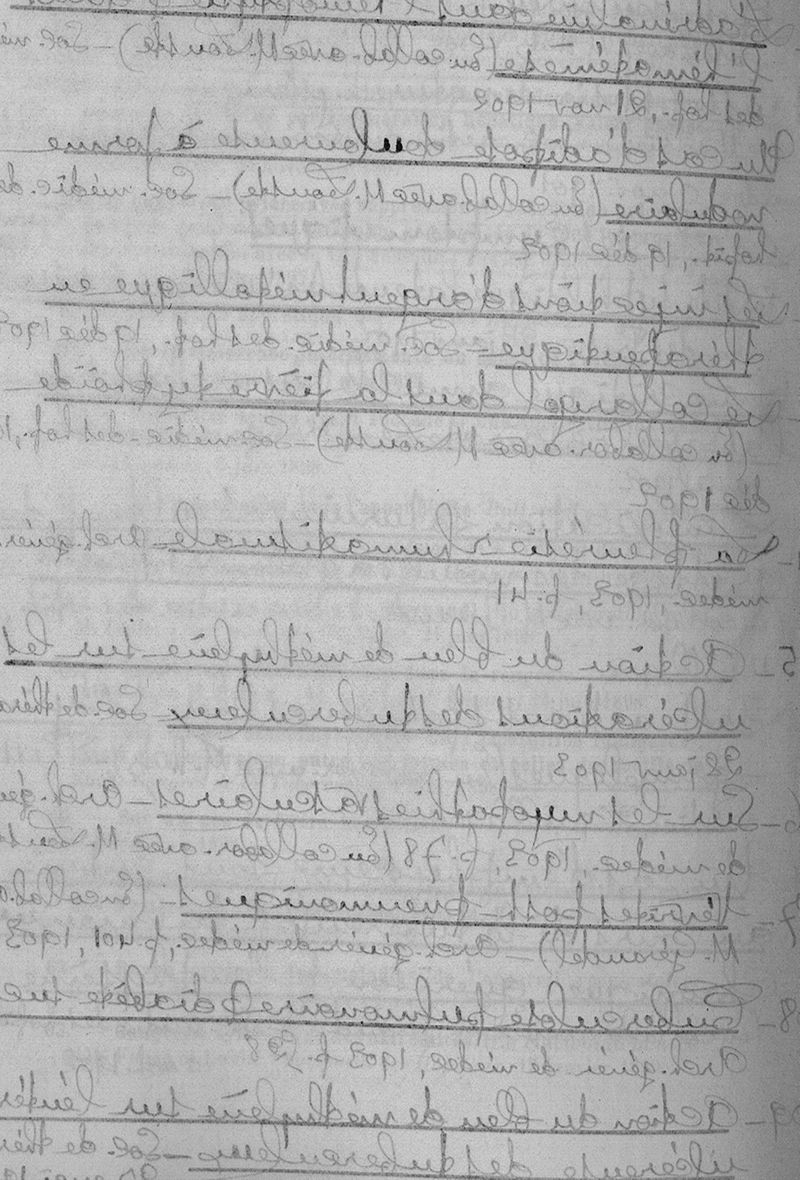 L'adrénaline dans l'hémoptysie
l'hématémèse (En collab. avec M. Souste) – Soc. mé
des hôp., 21 nov 1902
Un cas d'adipose douloureuse à forme
nodulaire (En collab. avec M. Souste) – Soc. médic. de
hôpit., 19 déc 1902
Les injections d'argent métallique en
thérapeutique – Soc. médic. des hop., 19 déc 190
Le collargol dans la fièvre typhoïde
(En collabor. avec M. Souste) – Soc. médic. des hop., 1
déc 1902
La pleurésie rhumatismale – Arch. génér.
médec., 1903, p. 41
5 – Action du bleu de méthylène sur les
ulcérations des tuberculeux Soc. de théra
28 janv 1903
6 – Sur les myopathies vasculaires – Arch. gé
de médec., 1903, p. 78 (En collabor. avec M. Sous
7 – Névrites post-pneumoniques – (En collab.
M. Géraudel) – Arch. génér. de médec., p. 401, 1903
8 – Tuberculose pulmonaire diabète
Arch. génér. de médec., 1903 p. 598
9 – Action du bleu de méthylène sur l'entér
ulcéreuse des tuberculeux – Soc. de thér